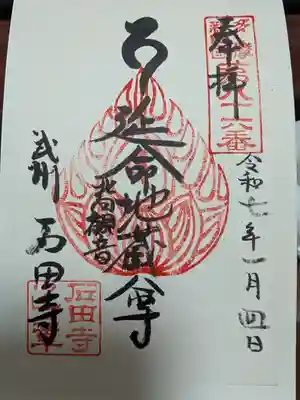 奉拝
令和七年一月四日
延命地蔵尊
北向観音
武州
石田寺
石田寺